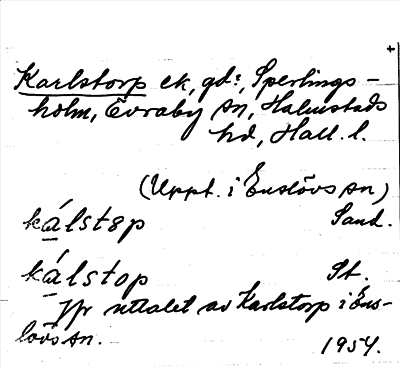 Karlstorp ek, gd:, Sperlings-
holm, Övraby sn, Halmstads
hd, Hall. l.
(Uppt. i Enslövs sn)
kálstɵp Sand.
kálstop St.
Jfr uttalet av Karlstorp i Ens-
lövs sn. 1954.